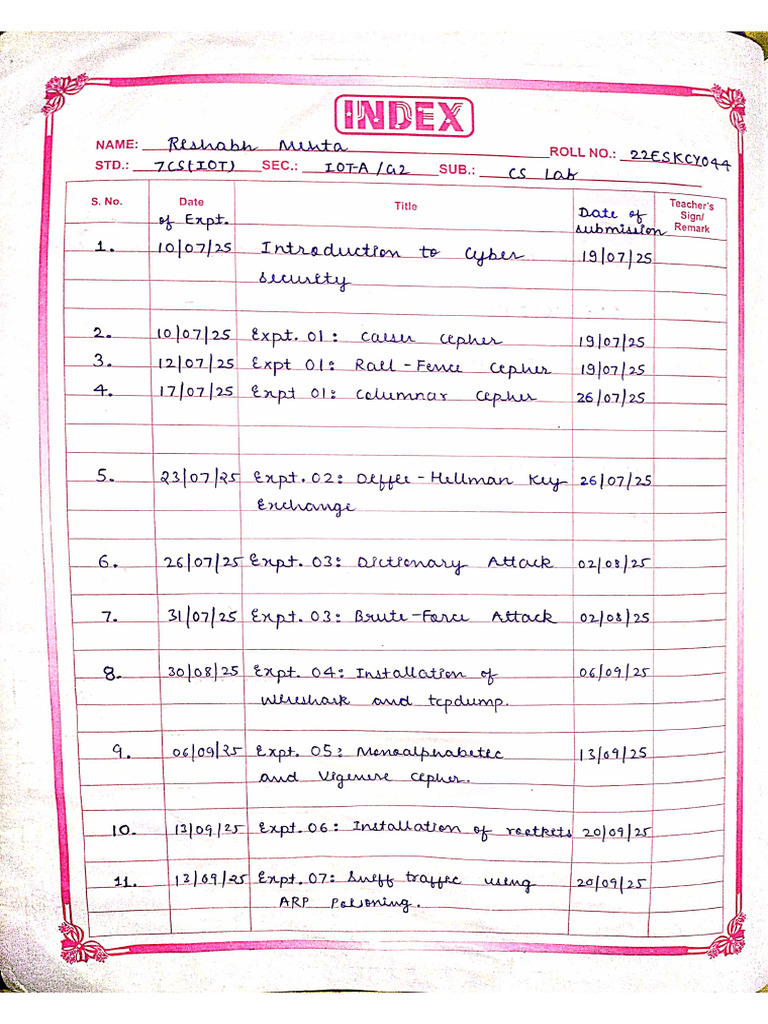 INDEX
NAME: Reshabh Mehta ROLL NO.: 22ESKCY044
STD.: 7CS(IOT) SEC.: IOT-A/G2 SUB.: CS Lab
S. No. Date of Expt. Title Date of submission Teacher's Sign/ Remark
1. 10/07/25 Introduction to Cyber 19/07/25
security
2. 10/07/25 Expt. 01: Caeser Cepher 19/07/25
3. 12/07/25 Expt 01: Rail-Fence Cepher 19/07/25
4. 17/07/25 Expt 01: Columnar Cepher 26/07/25
5. 23/07/25 Expt. 02: Deffee-Hellman Key 26/07/25
Exchange
6. 26/07/25 Expt. 03: Dictionary Attack 02/08/25
7. 31/07/25 Expt. 03: Brute-Force Attack 02/08/25
8. 30/08/25 Expt. 04: Installation of 06/09/25
Wireshark and tcpdump.
9. 06/09/25 Expt. 05: Monoalphabetec 13/09/25
and Vigenere Cepher.
10. 13/09/25 Expt. 06: Installation of rootkets 20/09/25
11. 13/09/25 Expt. 07: Sneff traffec using 20/09/25
ARP Poisoning.